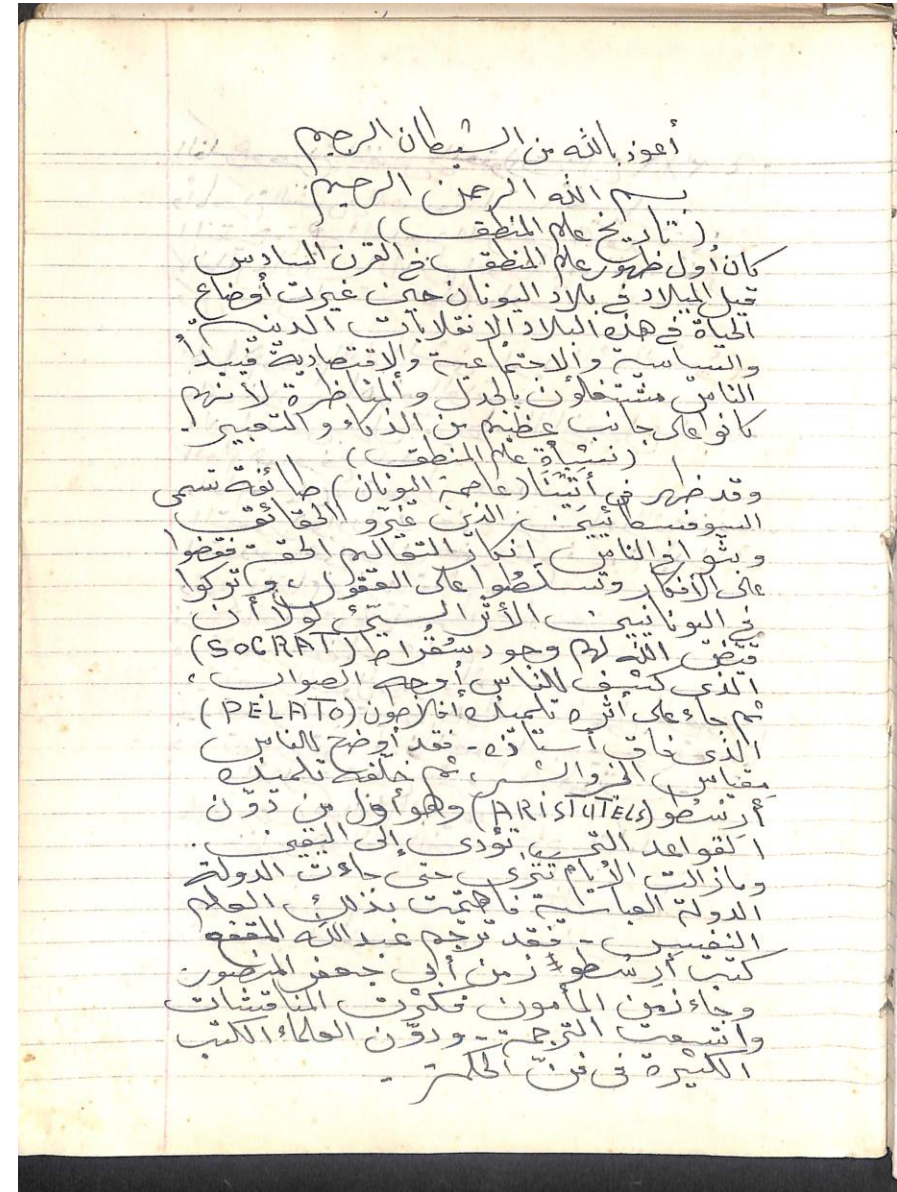 أعوذ بالله من الشيطان الرجيم
بسم الله الرحمن الرحيم
(تاريخ علم المنطق)
كان أول ظهور علم المنطق في القرن السادس
قبل الميلاد في بلاد اليونان حين غيرت أوضاع
الحياة في هذه البلاد الانقلابات الدينية
والسياسية والاجتماعية والاقتصادية فيبدأ
الناس مشتغلون بالجدل والمناظرة لأنهم
كانوا على جانب عظيم من الذكاء والتعبير.
(نشأة علم المنطق)
وقد ظهر في أثينا (عاصمة اليونان) طائفة تسمى
السوفسطائيين الذين غيرو الحقائق
وبثوا في الناس انكار التعاليم الحقة فقضوا
على الأفكار وتسلطوا على العقول، وتركوا
في اليونانيين الأثر السيئ لولا أن
قيض الله لهم وجود سقراط (SOCRAT)
الذي كشف للناس أوجه الصواب،
ثم جاء على أثره تلميذه أفلاطون (PELATO)
الذي فاق أستاذه - فقد أوضح للناس
مقياس الخير والشر، ثم خلفه تلميذه
أرسطو (ARiSTUTELS) وهو أول من دوّن
القواعد التي تؤدى إلى اليقين.
وما زالت الأيام تترى حتى جاءت الدولة
الدولة العباسية فاهتمت بذلك العلم
النفيس - فقد ترجم عبد الله المقفع
كتب أرسطو زمن أبي جعفر المنصور.
وجاء زمن المأمون فكثرت المناقشات
واتسعت الترجمة - ودوّن العلماء الكتب
الكثيرة في فنّ الحكمة -